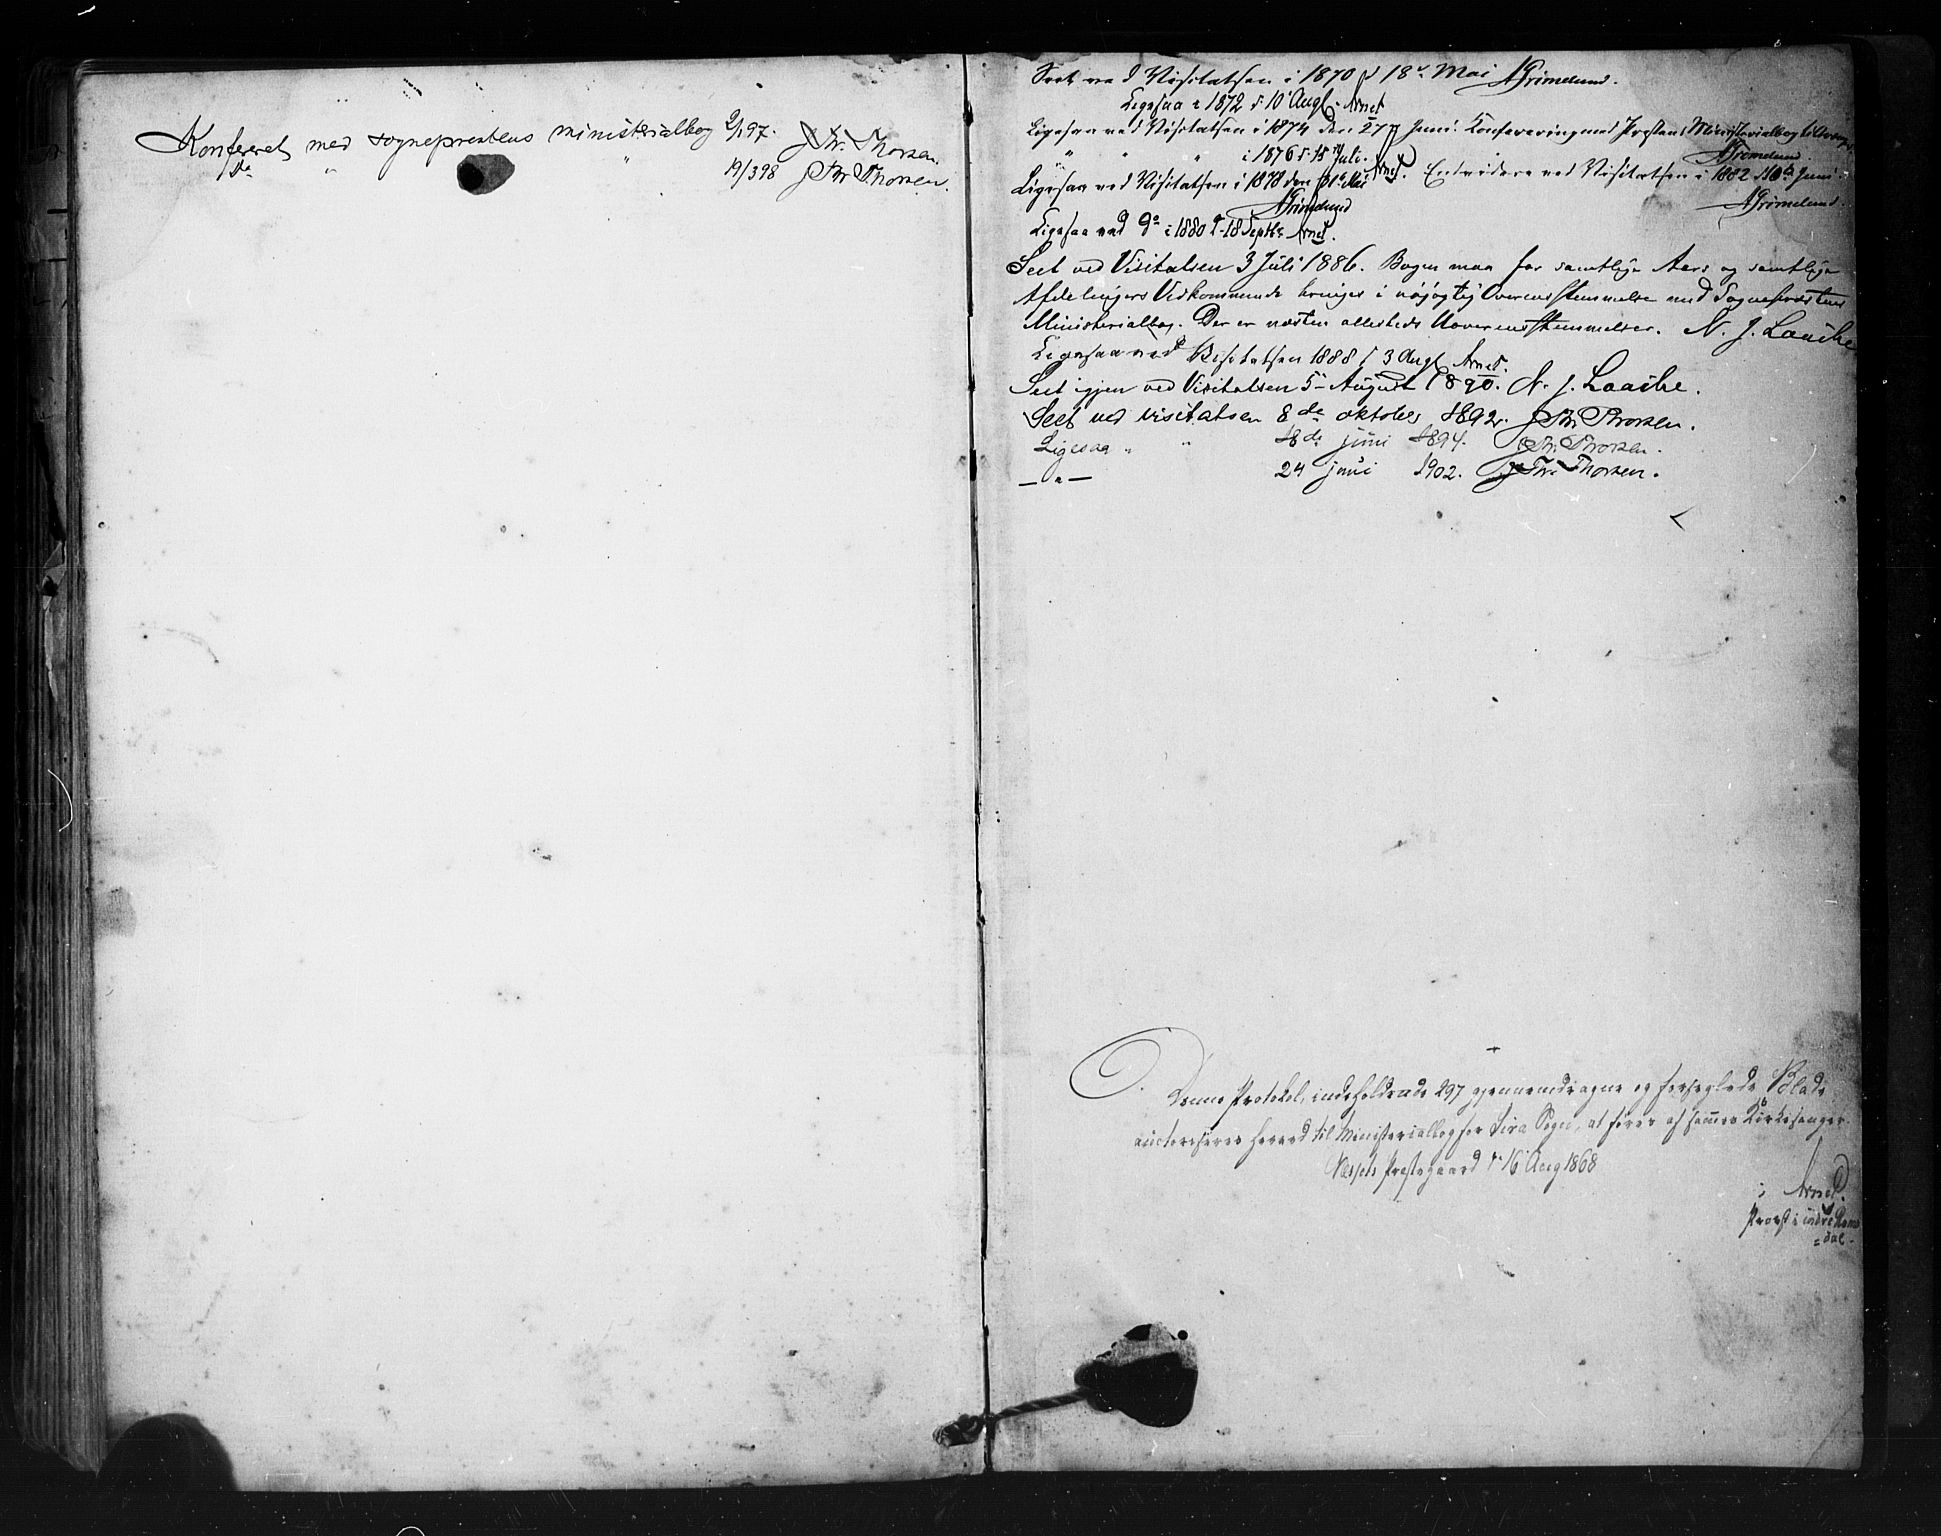 Konfereret med sogneprestens ministerialbog 2/1 97. J Thr. Thorsen.
do " " 19/3 98 J Thr Thorsen.
Seet ved Visitatsen i 1870 d 18de Mai AGrimelund.
Ligesaa i 1872 d. 10 Augt. Arnet
Ligesaa ved Visitatsen i 1874 den 27 Juni. Konfereering med Prestens Ministerialbog
" " " i 1876 d. 15 Juli. AGrimelund.
Ligesaa ved Visitatsen i 1878 den 31te Mai Arnet. Endvidere ved Visitatsen i 1882 Juni.
AGrimelund AGrimelund.
Ligesaa ved do i 1880 d. 18 Septbr Arnet.
Seet ved Visitatsen 3 Juli 1886. Bogen maa for samtlige Aars og samtlige
Afdelingers Vedkommende bringes i nøjagtig Overensstemmelse med Sognepræstens
Ministerialbog. Der er næsten allesteds Uoverensstemmelser. N. J. Laache
Ligesaa ved Visitatsen 1888 d 3 Augt Arnet.
Seet igjen ved Visitatsen 5te August 1890. N. J. Laache.
Seet ved visitatsen 8de oktober 1892. J Thr. Thorsen.
Ligesaa " " 18de juni 1894. J Thr. Thorsen.
— " — 24 juni 1902. J Thr. Thorsen.
Denne Protokol, indeholdende 297 gjennemdragne og forseglede Blade
auctoriseres herved til Ministerialbog for Sira Sogn, at føres af sammes Kirkesanger.
Næssets Præstegaard d. 16 Aug 1868
Arnet.
Provst i indre Roms
=dal.